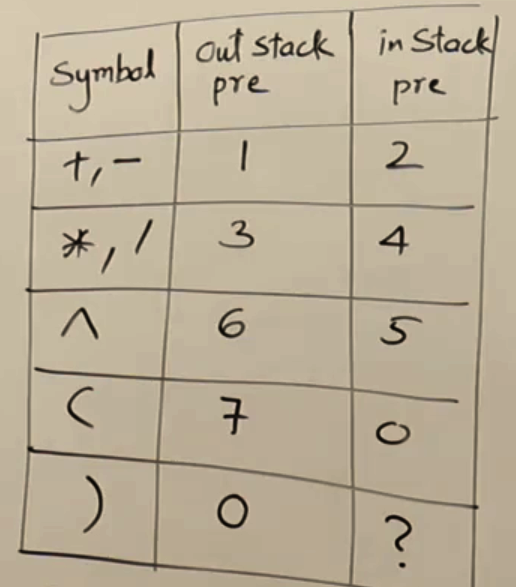 Symbol out stack pre in Stack pre
+, - 1 2
*, / 3 4
^ 6 5
( 7 0
) 0 ?